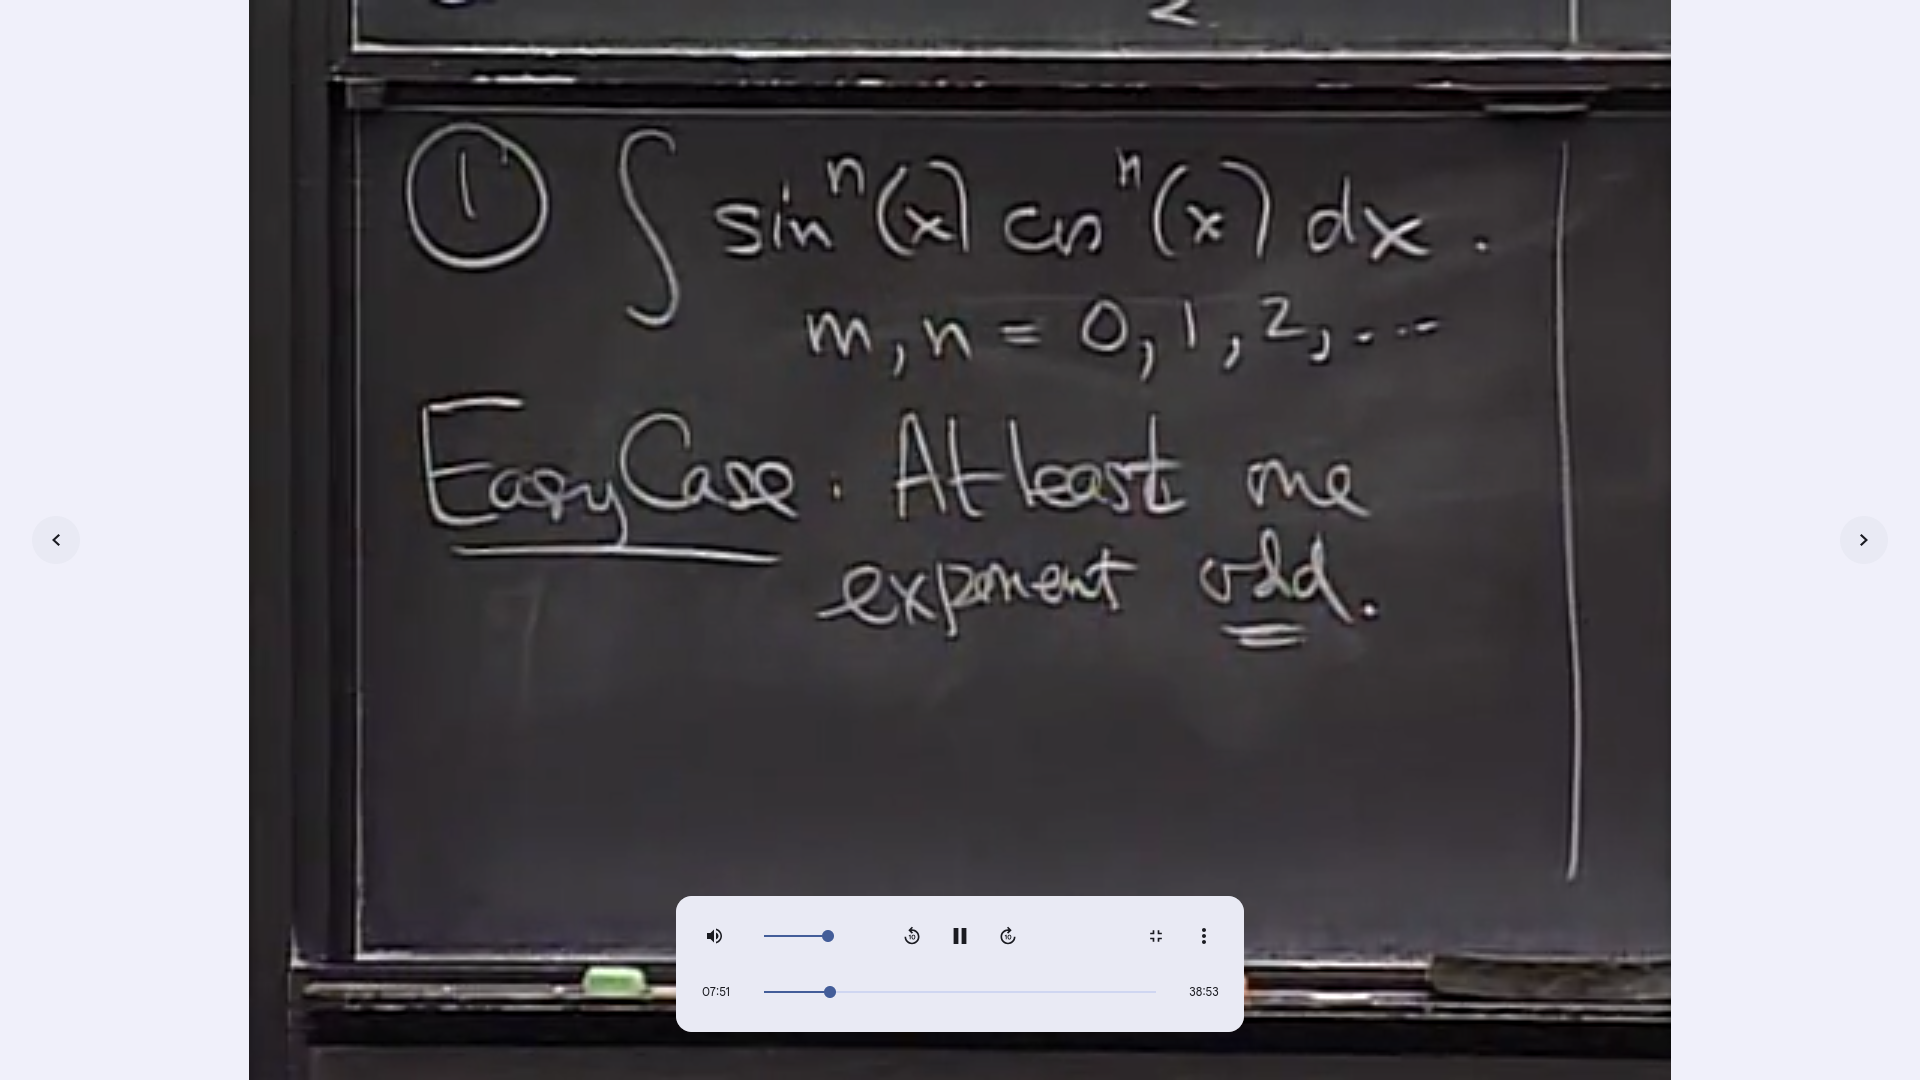 2
① ∫ sinⁿ(x) cosⁿ(x) dx .
m, n = 0, 1, 2, ...
Easy Case. At least one
exponent odd.
10 10
07:51 38:53